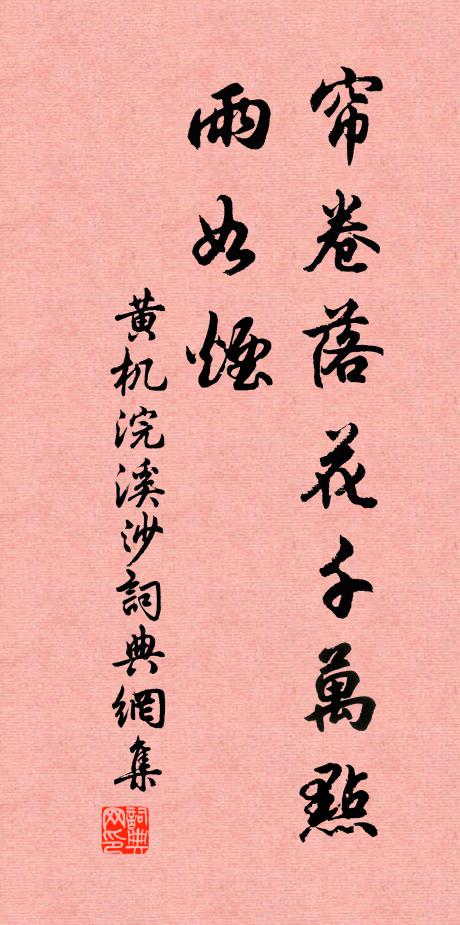 帘卷落花千萬點
雨如煙
黄机浣溪沙詞典網集
詞典
网印